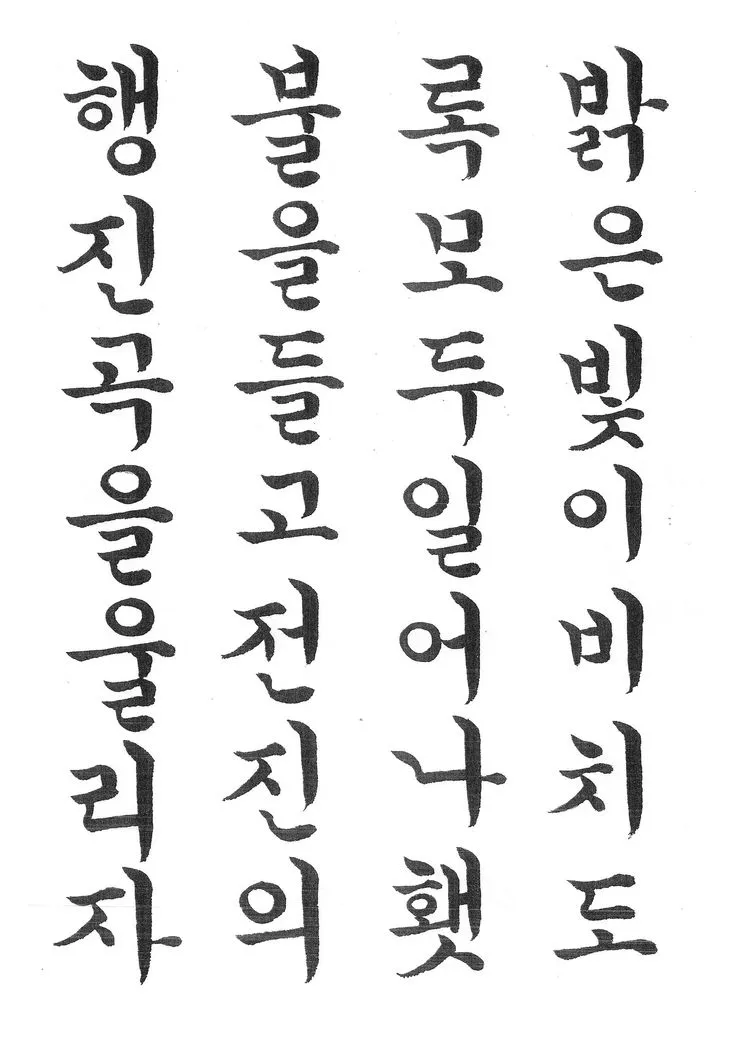 밝은빛이비치도
록모두일어나횃
불을들고전진의
행진곡을울리자